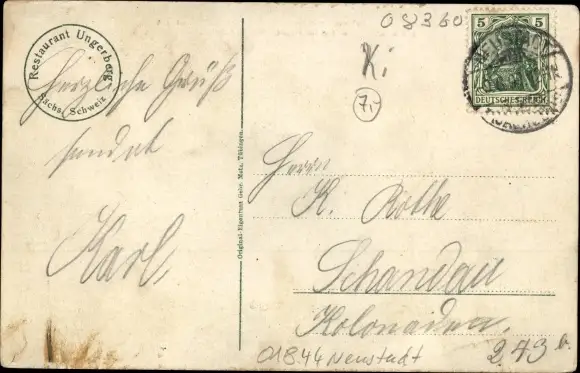 Restaurant Ungerberg
Sächs. Schweiz
Herzliche Grüße
sendet
Karl.
Original-Eigentum Gebr. Metz, Tübingen.
08360
K.
7,-
5 5
DEUTSCHES REICH
Herrn
K. Rothe
Schandau
Kolonaden.
273 b.
01844 Neustadt